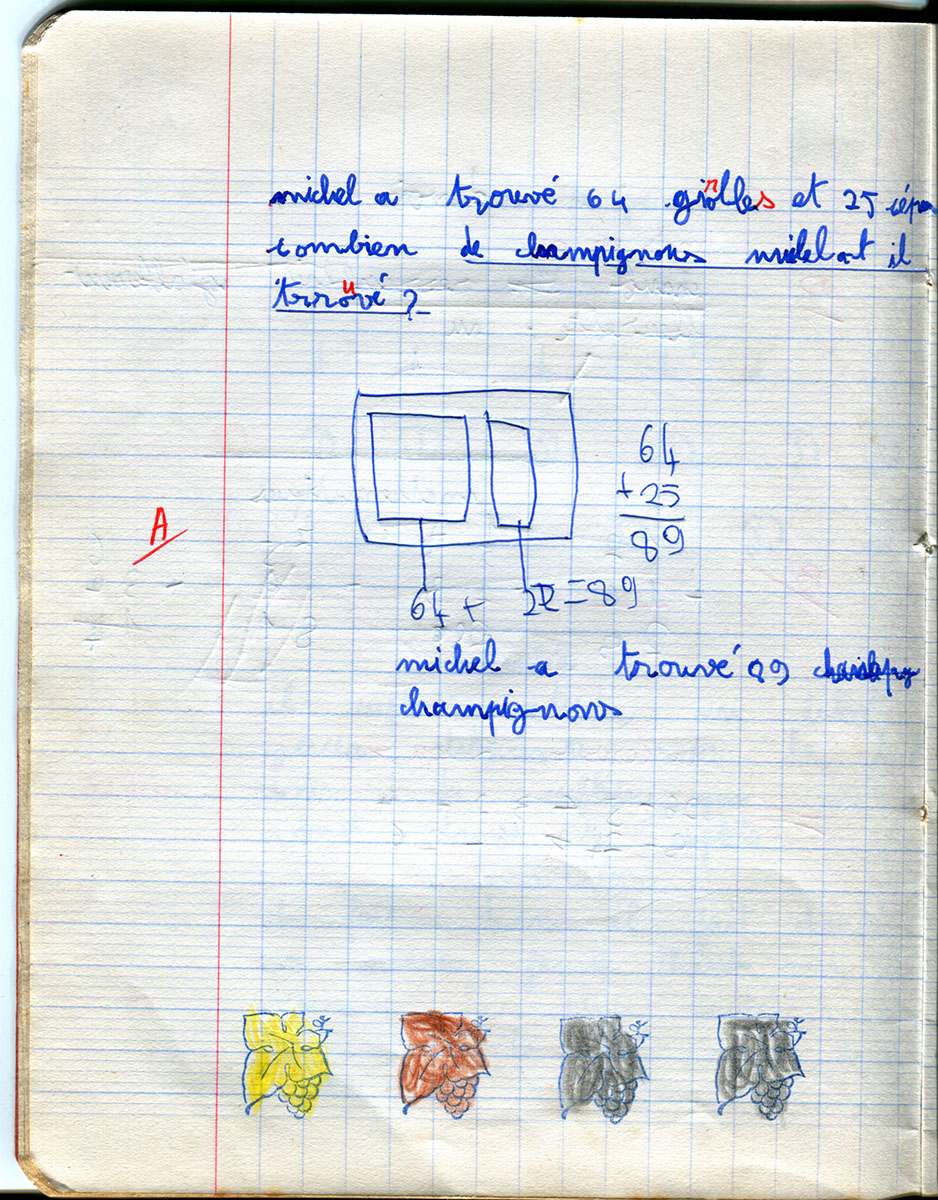 michel a trouvé 64 girolles et 25 cépes
combien de champignons michel a-t il
trouvé ?
64
+ 25
89
A
64 + 25 = 89
michel a trouvé 89
champignons